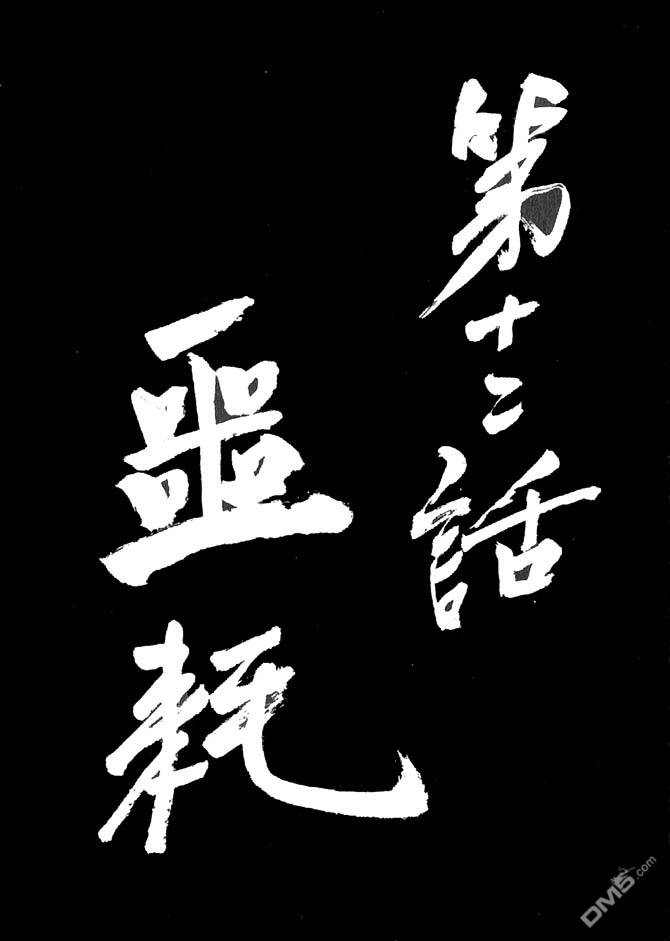 第十二話
噩耗
DM5.com